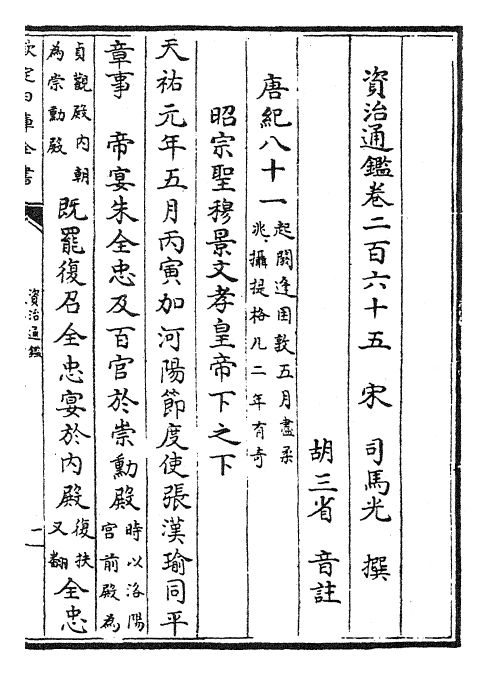 資治通鑑卷二百六十五 宋 司馬光 撰
胡三省 音註
唐紀八十一 起閼逢困敦五月盡柔兆攝提格凡二年有奇
昭宗聖穆景文孝皇帝下之下
天祐元年五月丙寅加河陽節度使張漢瑜同平
章事 帝宴朱全忠及百官於崇勳殿 時以洛陽宮前殿為
貞觀殿內朝為崇勳殿 既罷復召全忠宴於內殿 復扶又翻 全忠
欽定四庫全書
資治通鑑
一